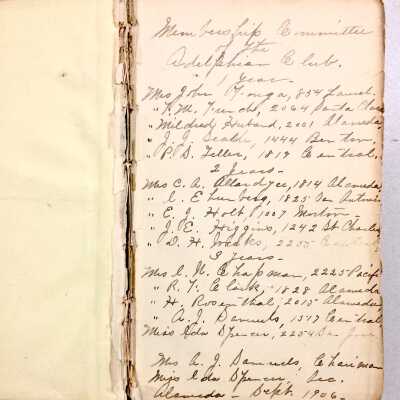 Membership Committee
of the
Adelphian Club.
" 1 year -
Mrs John Conga, 854
" F. M. French, 2064 Santa Clara
" Mildred Hubard, 2001 Alameda,
" J. J. Scable, 1444 Benton,
" P. S. Teller, 1819 Central,
2 years -
Mrs C. A. Allardyce, 1814 Alameda,
" C. Ehrenberg, 1825 San Antonio
" E. J. Holt, 1007 Morton
" J. E. Higgins, 1242 St Charles
" D. H. 2255 Central
3 years -
Mrs C. N. Chapman, 2225 Pacific
" R. T. Clark, 1828 Alameda
" H. Rosenthal, 2015 Alameda,
" A. J. Samuels, 1517 Central,
Miss Ida Spencer, 2254 San Jose
Mrs A. J. Samuels, Chairman
Miss Ida Spencer, Sec.
Alameda - Sept. 1906 -